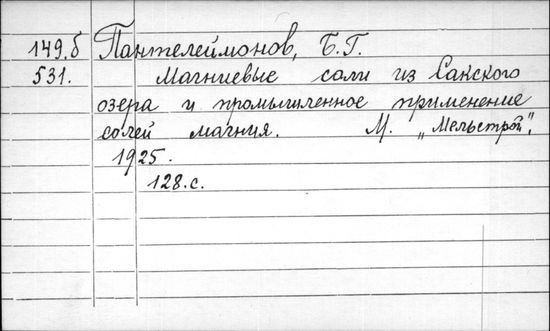 149.б Пантелеймонов, Б.Г.
531. Магниевые соли из Сакского
озера и промышленное применение
солей магния. М. „Мельстрой",
1925.
128.с.